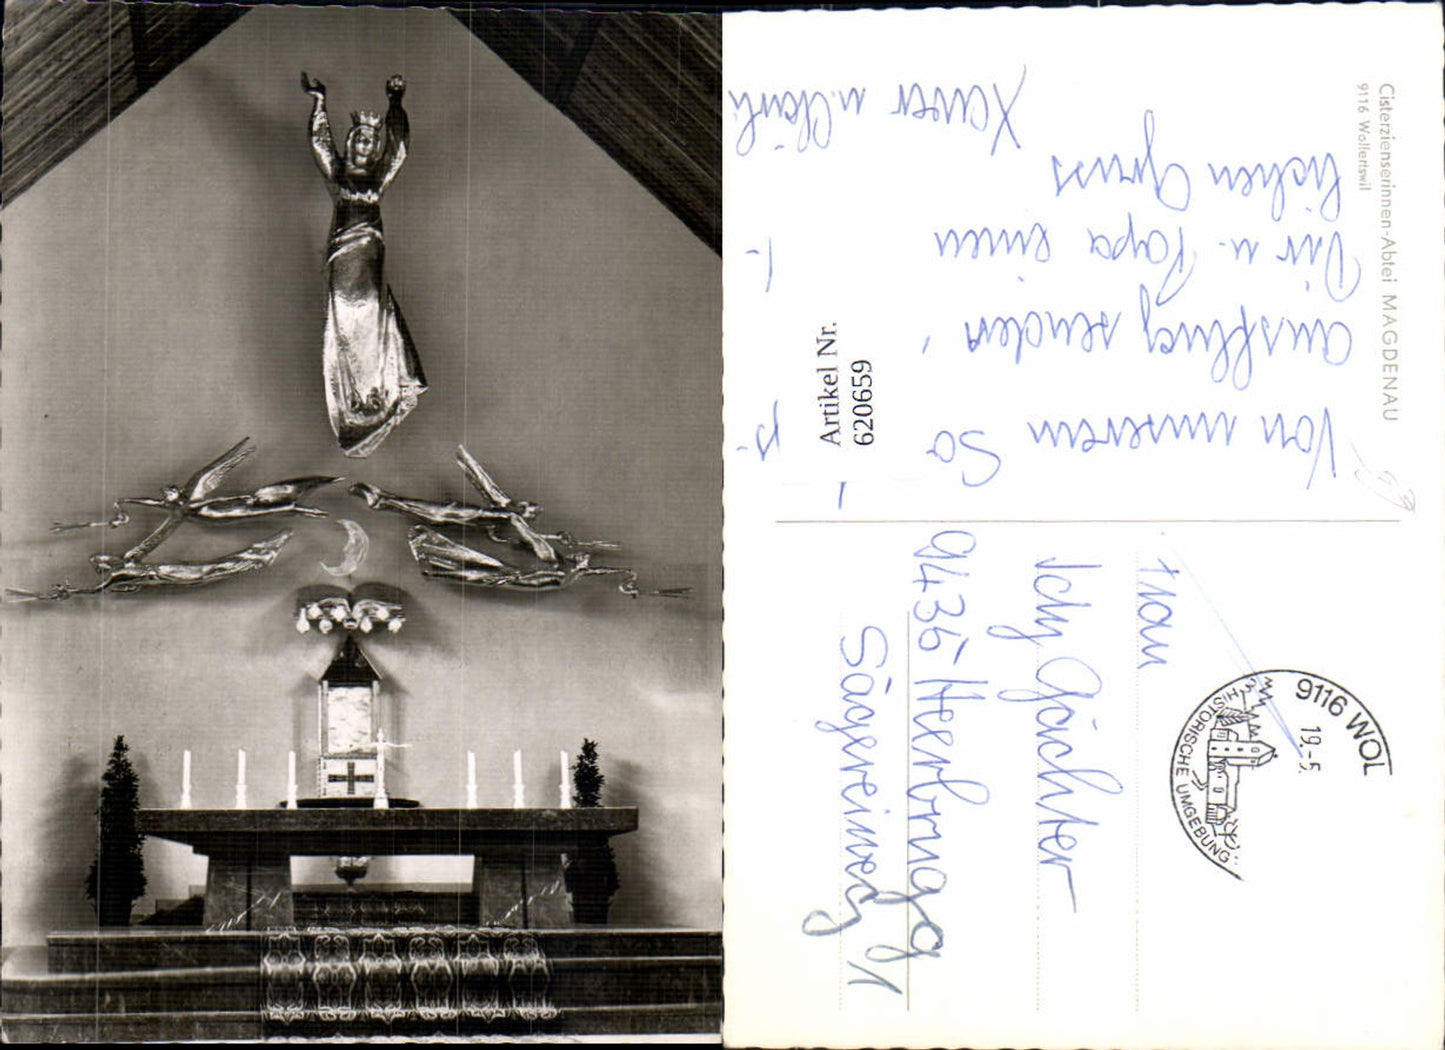 Cisterzienserinnen-Abtei MAGDENAU
9116 Wolfertswil
Von unserem Sa
ausflug senden
Dir u. Papa einen
lieben Gruss
Xaver u.
9116 WOL
19.-5.
HISTORISCHE UMGEBUNG
Frau
Idy Gächter
9435 Heerbrugg
Sägereiweg 1
Artikel Nr.
620659